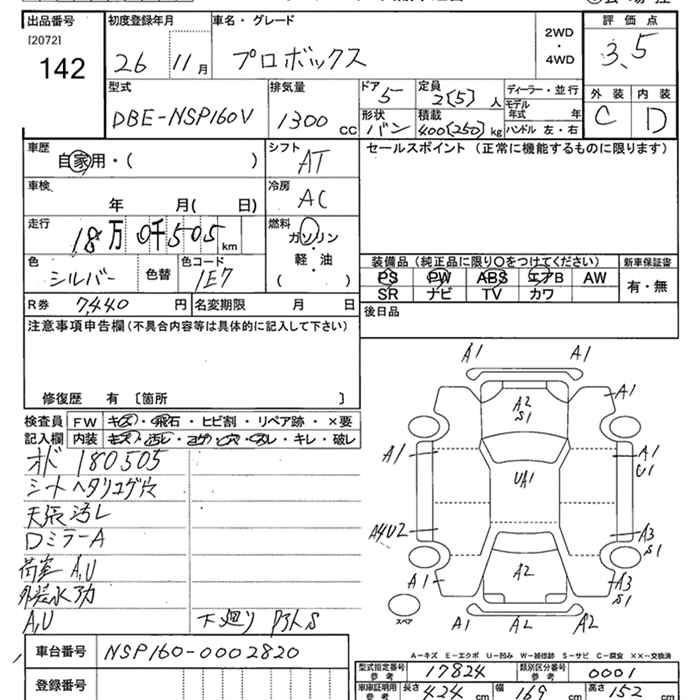 出品番号 初度登録年月 車名・グレード 評価点
[2072]
142 26 11月 プロボックス 2WD・4WD 3.5
型式 排気量 ドア 5 定員 2(5)人 ディーラー・並行 外装 内装
DBE-NSP160V 1300cc 形状 バン 積載 400(250)kg モデル年式 年 C D
ハンドル 左・右
車歴 シフト セールスポイント (正常に機能するものに限ります)
自家用・( ) AT
車検 冷房
年 月( 日) AC
走行 18万0千505km 燃料 ガソリン・軽・油 ( )
色 シルバー 色替 色コード 1E7
装備品 (純正品に限り○をつけてください) 新車保証書
PS PW ABS エアB AW 有・無
SR ナビ TV カワ
R券 7,440円 名変期限 月 日 後日品
注意事項申告欄 (不具合内容等は具体的に記入して下さい)
修復歴 有 〔箇所 〕
検査員 FW キズ・飛石・ヒビ割・リペア跡・×要
記入欄 内装 キズ・汚レ・コゲ・穴・スレ・キレ・破レ
オド 180505
シート ヘタリコゲ穴
天張汚レ
DミラーA
荷室 A,U
A,U 下廻り S
A1 A1
A2 S1
A1
A1 A1 U1
UA1
A4U2 A3 S1
A1 A2 A3 S1
スペア A1 A2 A2
A-キズ E-エクボ U-凹み W-補修跡 S-サビ C-腐食 ××-交換済
車台番号 NSP160-0002820
型式指定番号 参考 17824 類別区分番号 参考 0001
登録番号
車庫証明用 参考 長さ 424cm 幅 169cm 高さ 152cm